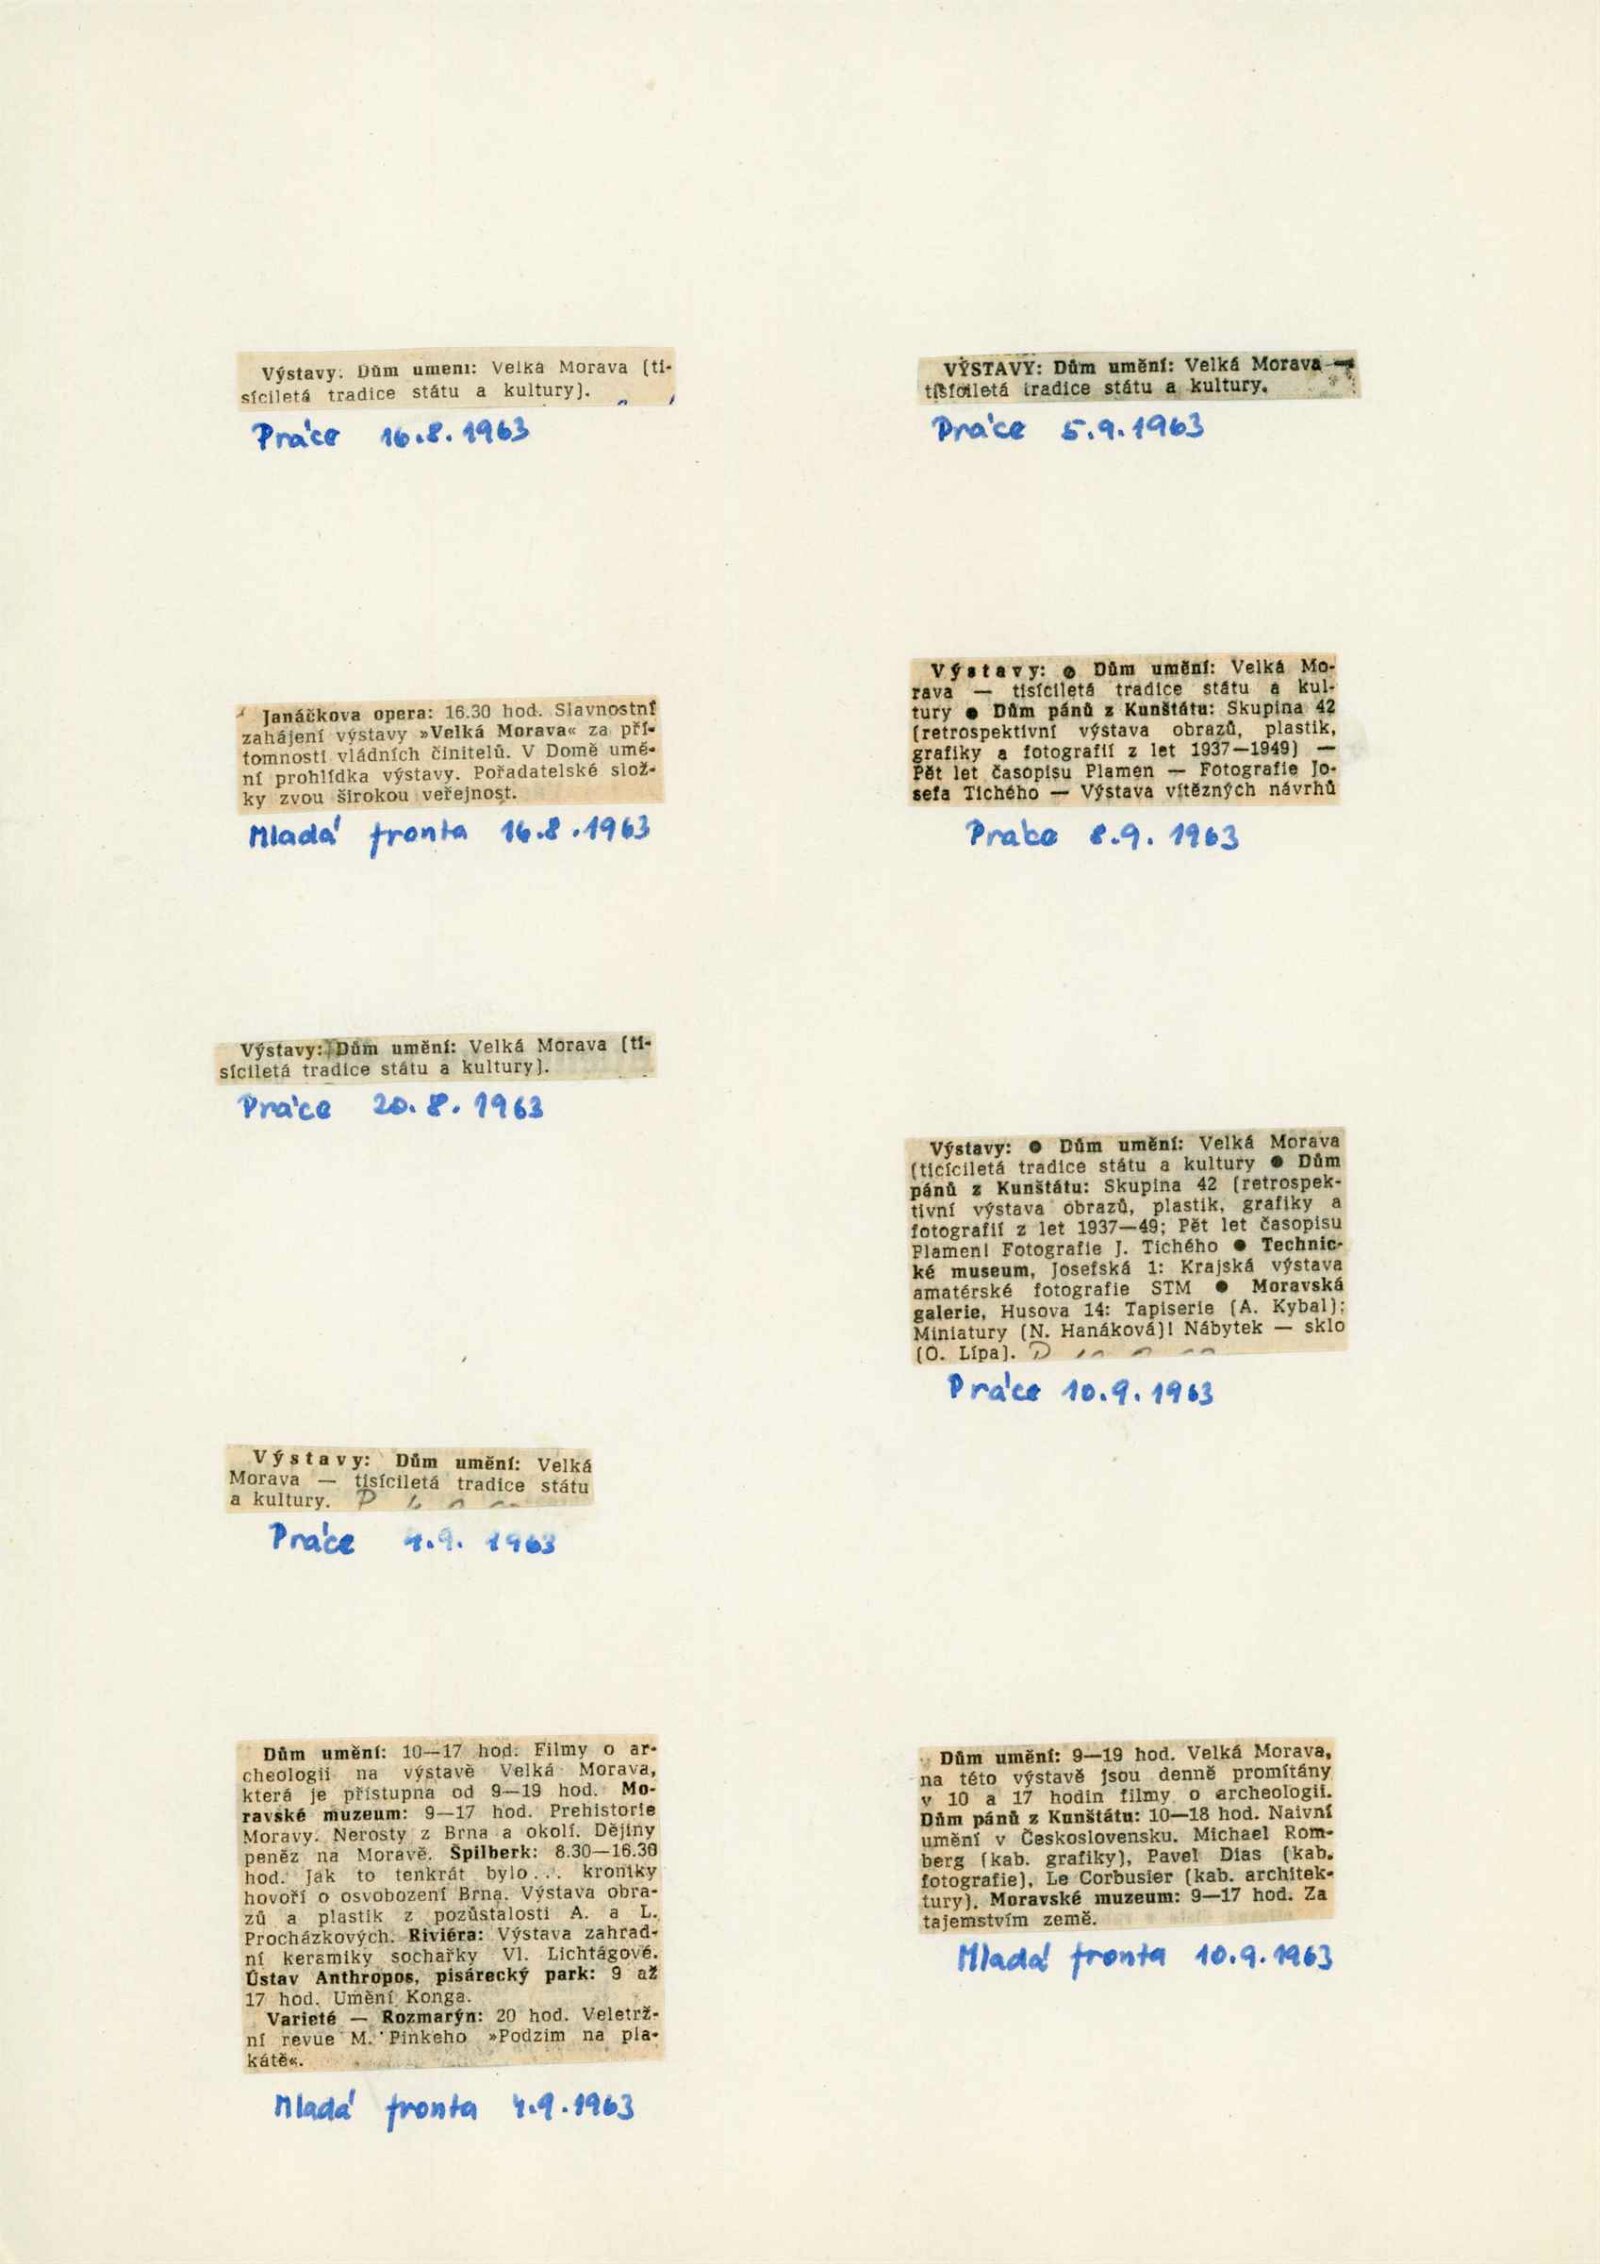 Výstavy. Dům umění: Velká Morava (ti-
síciletá tradice státu a kultury).
Práce 16.8.1963
Janáčkova opera: 16.30 hod. Slavnostní
zahájení výstavy »Velká Morava« za pří-
tomnosti vládních činitelů. V Domě umě-
ní prohlídka výstavy. Pořadatelské slož-
ky zvou širokou veřejnost.
Mladá fronta 16.8.1963
Výstavy: Dům umění: Velká Morava (ti-
síciletá tradice státu a kultury).
Práce 20.8.1963
Výstavy: Dům umění: Velká
Morava — tisíciletá tradice státu
a kultury.
Práce 4.9.1963
Dům umění: 10—17 hod. Filmy o ar-
cheologii na výstavě Velká Morava,
která je přístupna od 9—19 hod. Mo-
ravské muzeum: 9—17 hod. Prehistorie
Moravy. Nerosty z Brna a okolí. Dějiny
peněz na Moravě. Špilberk: 8.30—16.30
hod. Jak to tenkrát bylo... kroniky
hovoří o osvobození Brna. Výstava obra-
zů a plastik z pozůstalosti A. a L.
Procházkových. Riviéra: Výstava zahrad-
ní keramiky sochařky Vl. Lichtágové.
Ústav Anthropos, pisárecký park: 9 až
17 hod. Umění Konga.
Varieté — Rozmarýn: 20 hod. Veletrž-
ní revue M. Pinkeho »Podzim na pla-
kátě«.
Mladá fronta 4.9.1963
VÝSTAVY: Dům umění: Velká Morava —
tisíciletá tradice státu a kultury.
Práce 5.9.1963
Výstavy: ● Dům umění: Velká Mo-
rava — tisíciletá tradice státu a kul-
tury ● Dům pánů z Kunštátu: Skupina 42
(retrospektivní výstava obrazů, plastik,
grafiky a fotografií z let 1937—1949) —
Pět let časopisu Plamen — Fotografie Jo-
sefa Tichého — Výstava vítězných návrhů
Práce 8.9.1963
Výstavy: ● Dům umění: Velká Morava
(ticíciletá tradice státu a kultury ● Dům
pánů z Kunštátu: Skupina 42 (retrospek-
tivní výstava obrazů, plastik, grafiky a
fotografií z let 1937—49; Pět let časopisu
Plamen! Fotografie J. Tichého ● Technic-
ké museum, Josefská 1: Krajská výstava
amatérské fotografie STM ● Moravská
galerie, Husova 14: Tapiserie (A. Kybal);
Miniatury (N. Hanáková)! Nábytek — sklo
(O. Lípa).
Práce 10.9.1963
Dům umění: 9—19 hod. Velká Morava,
na této výstavě jsou denně promítány
v 10 a 17 hodin filmy o archeologii.
Dům pánů z Kunštátu: 10—18 hod. Naivní
umění v Československu. Michael Rom-
berg (kab. grafiky), Pavel Dias (kab.
fotografie), Le Corbusier (kab. architek-
tury). Moravské muzeum: 9—17 hod. Za
tajemstvím země.
Mladá fronta 10.9.1963